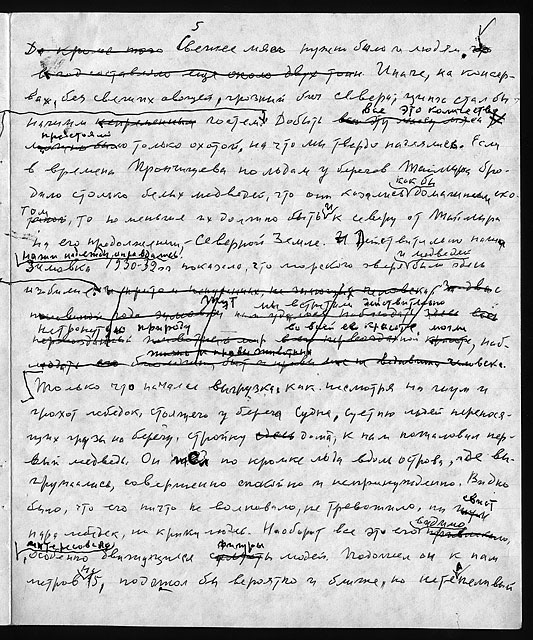 5
Да кроме того Свежее мясо нужно было и людям, что
в год составляло еще около двух тонн. Иначе, на консер-
вах, без свежих овощей, грозный бич севера, цинга стал бы
нашим непременным гостем. Добыть все это количество
предстояло
можно было только охотой, на что мы твердо надеялись. Если
в времена Прончищева по льдам у берегов Таймыра бро-
как бы
дило столько белых медведей, что они казались домашним ско-
том
то не меньше их должно быть и к северу от Таймыра
на его продолжении – Северной Земле. И Действительно наша
наши надежды оправдались
и медведей
Зимовка 1930-32гг показала, что морского зверя было здесь
изобилие.
Тут мы встретили действительно
нетронутую природу
во всей ее красе, могли
наб-
людать
жизнь и нравы животных
Только что началась выгрузка, как несмотря на шум и
грохот лебедок, стоящего у берега Судна, суетню людей перенося-
щих грузы на берегу, стройку здесь дома, к нам пожаловал пер-
вый медведь. Он шел по кромке льда вдоль острова, где вы-
гружались, совершенно спокойно и непринужденно. Видно
было, что его ничто не волновало, не тревожило, ни свист
пара лебедок, ни крики людей. Наоборот все это его видимо
интересовало,
особенно движущиеся фигуры людей. Подошел он к нам
метров на 15, подошел бы вероятно и ближе, но нетерпеливый